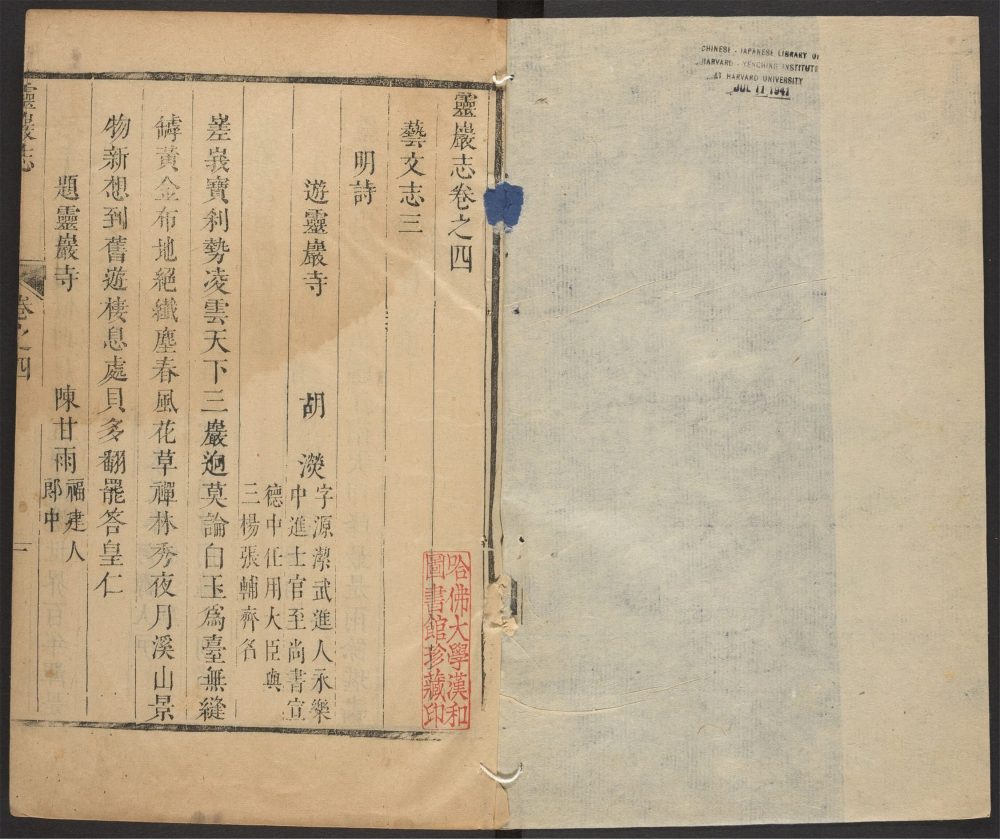 CHINESE - JAPANESE LIBRARY OF
HARVARD - YENCHING INSTITUTE
AT HARVARD UNIVERSITY
JUL 11 1941
靈巖志卷之四
藝文志三
明詩
遊靈巖寺 胡濙 字源潔武進人永樂
中進士官至尚書宣
德中任用大臣與
三楊張輔齊名
嵳峩寶刹勢凌雲天下三巖逈莫論白玉爲臺無縫
罅黃金布地絕纖塵春風花草禪林秀夜月溪山景
物新想到舊遊棲息處貝多翻罷答皇仁
題靈巖寺 陳甘雨 福建人
郎中
靈巖志 卷之四 一
哈佛大學漢和
圖書館珍藏印